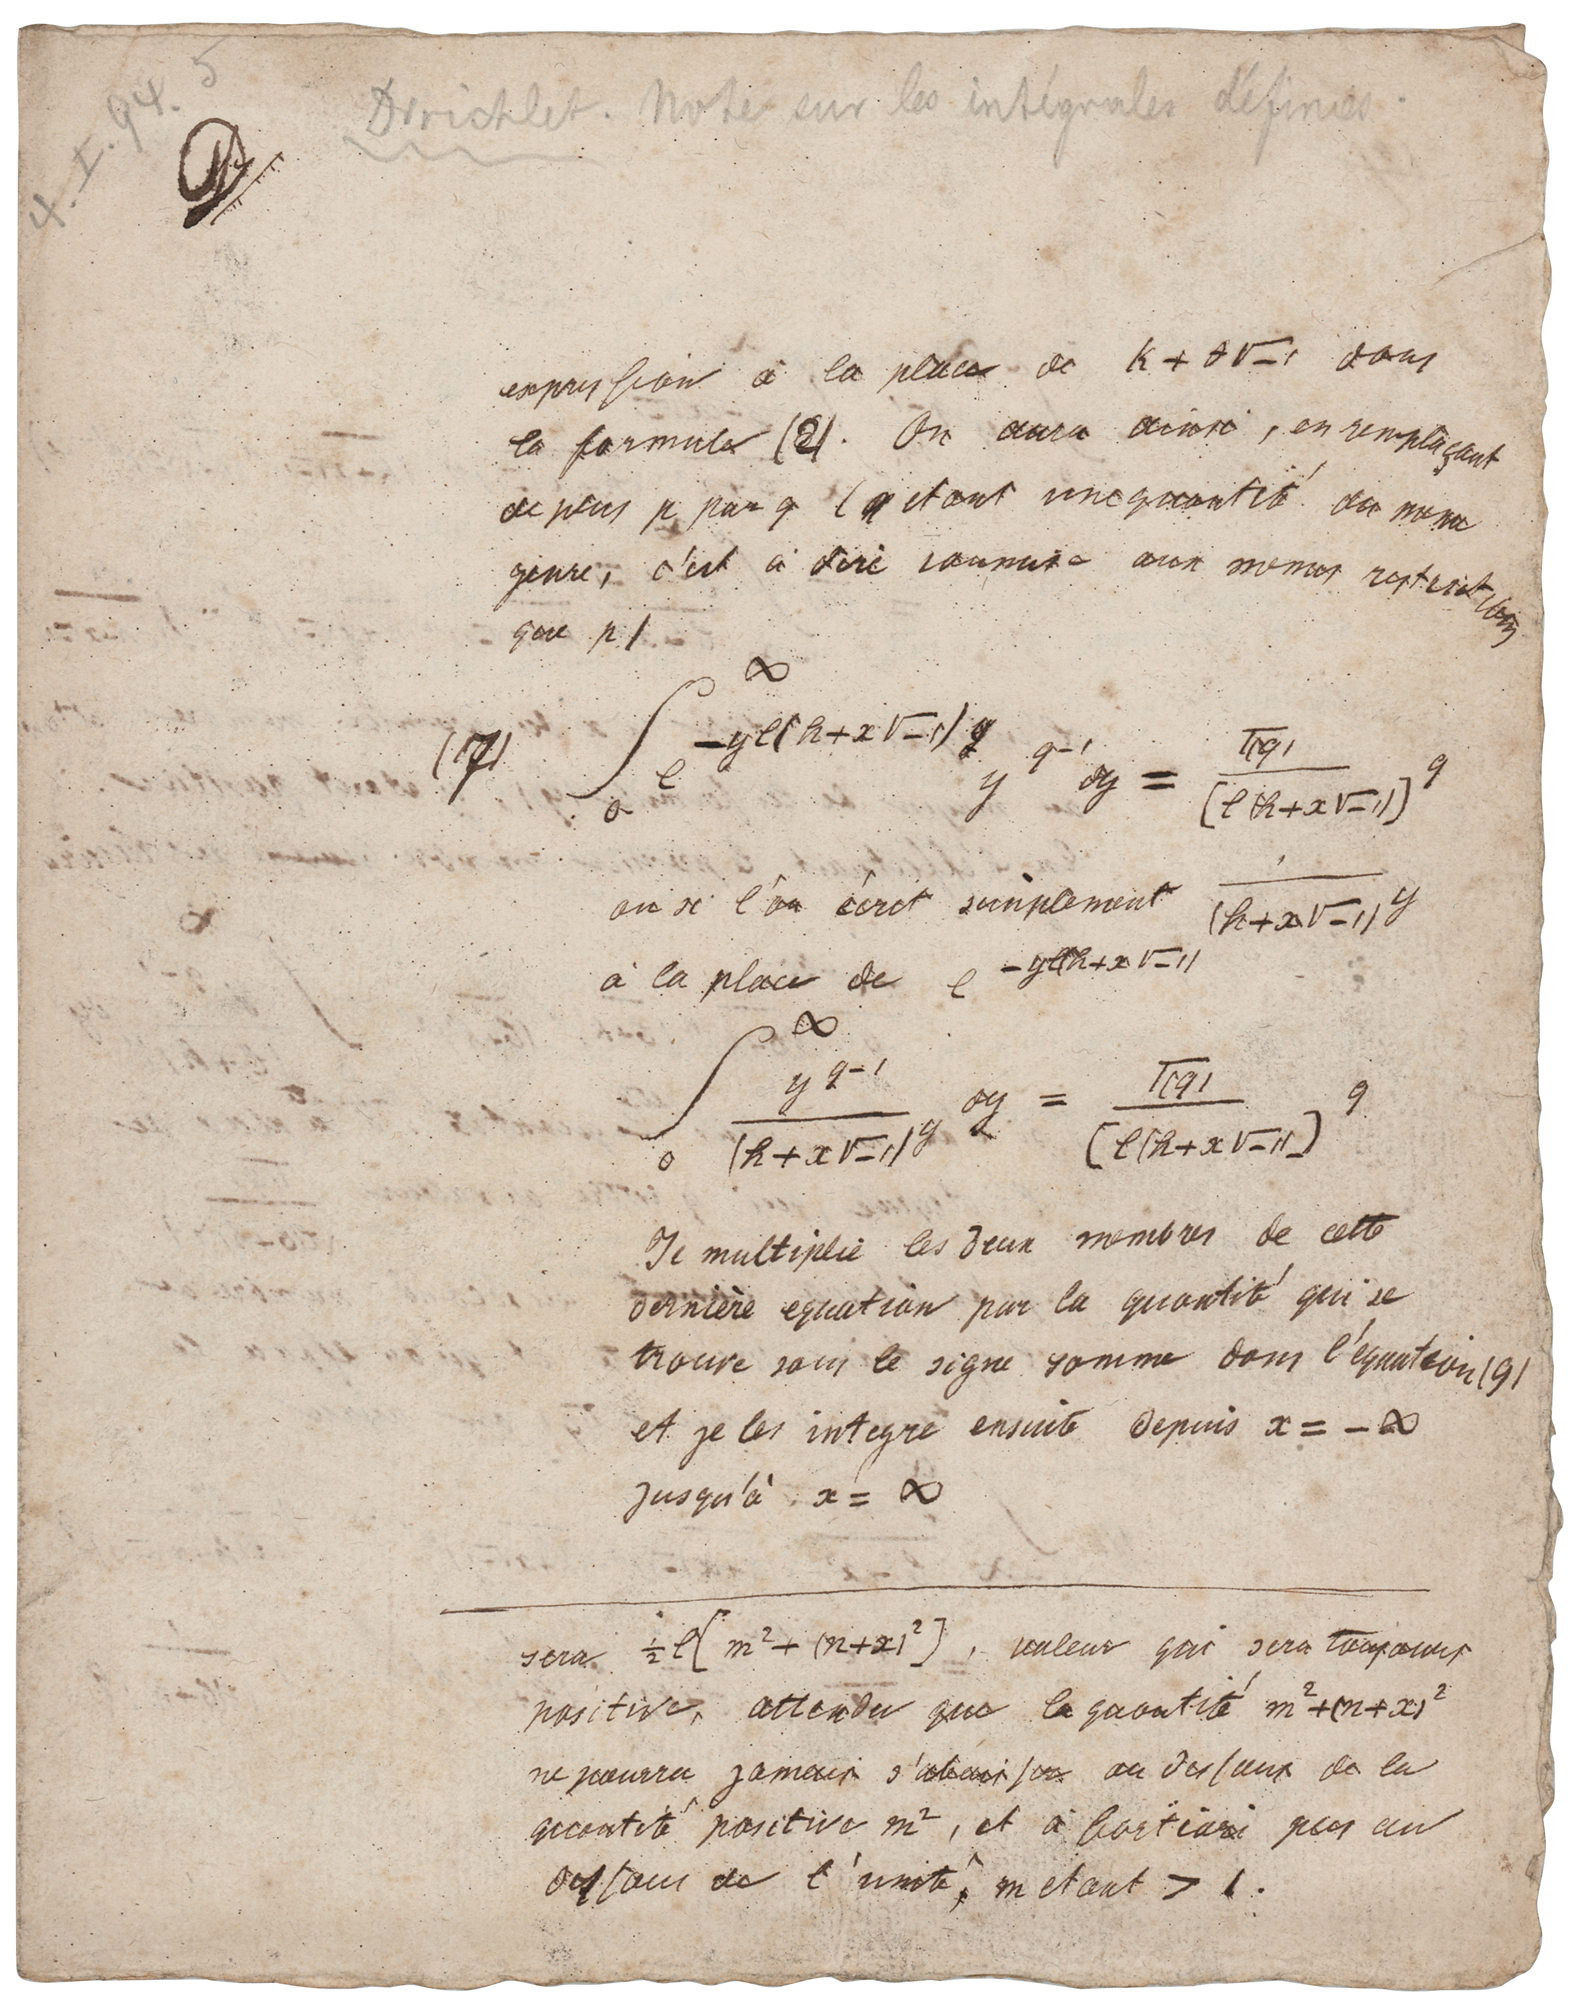 4. I. 94. 5
Dirichlet. Note sur les intégrales définies.
expression à la place de k + θ√-1 dans
la formule (2). On aura ainsi, en remplaçant
de plus p par q (q etant une quantité du meme
genre, c'est à dire soumise aux memes restrictions
que p)
(17) ∫₀^∞ e^{-yl(h+x√-1)} y^{q-1} dy = Γ(q) / [l(h+x√-1)]^q
ou si l'on écrit simplement 1 / (h+x√-1)^y
à la place de e^{-yl(h+x√-1)}
∫₀^∞ y^{q-1} / (h+x√-1)^y dy = Γ(q) / [l(h+x√-1)]^q
Je multiplie les deux membres de cette
dernière equation par la quantité qui se
trouve sous le signe somme dans l'équation (9)
et je les integre ensuite depuis x = -∞
jusqu'à x = ∞
sera ½ l[m²+(n+x)²], valeur qui sera toujours
positive, attendu que la quantité m²+(n+x)²
ne pourra jamais s'abaisser au dessous de la
quantité positive m², et à fortiori pas au
dessous de l'unité, m etant > 1.